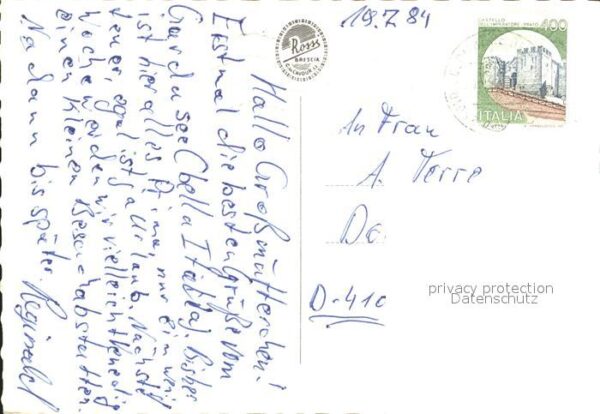 Hallo Großmütterchen!
Erstmal die besten Grüße vom
Gardasee (bella Italia). Bisher
ist hier alles prima, nur ein wenig
teuer, egal ist ja Urlaub. Nächste
Woche werden wir vielleicht Venedig
einen kleinen Besuch abstatten.
Na dann bis später.
Rossi
BRESCIA
C. CAVOUR
19.7.84
CASTELLO
DELL'IMPERATORE·PRATO
400
ITALIA
An Frau
A.
D-410
privacy protection
Datenschutz